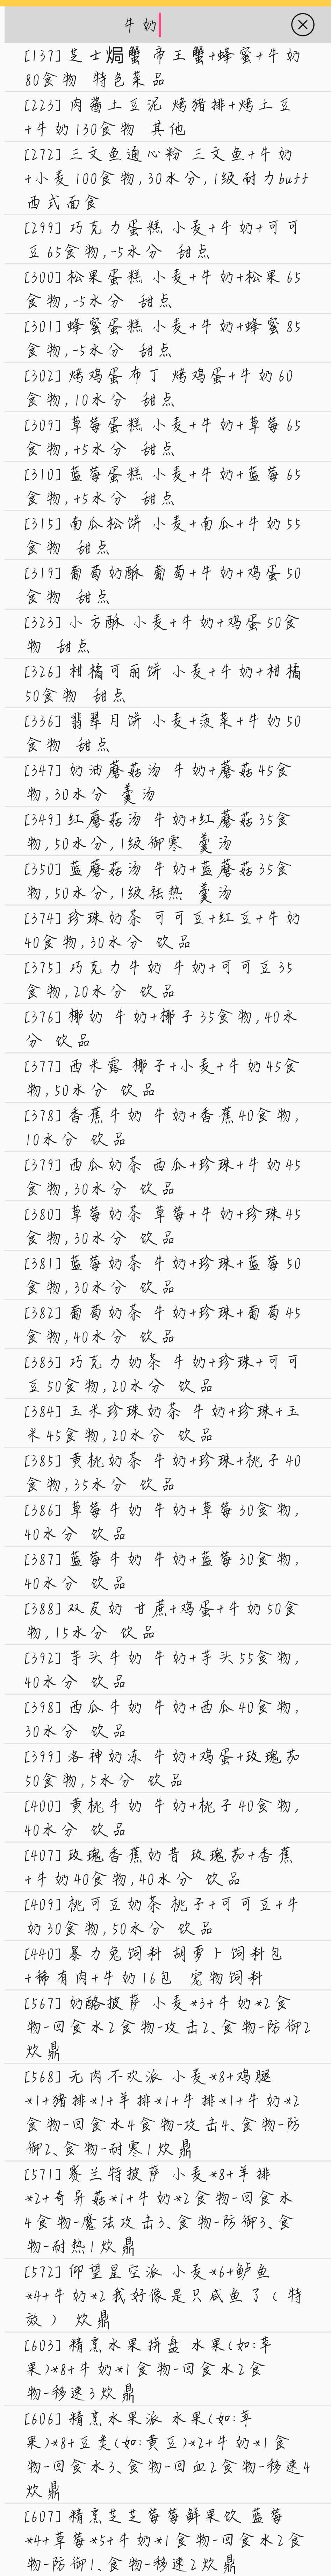 牛奶
[137] 芝士焗蟹 帝王蟹+蜂蜜+牛奶
80食物 特色菜品
[223] 肉酱土豆泥 烤猪排+烤土豆
+牛奶130食物 其他
[272] 三文鱼通心粉 三文鱼+牛奶
+小麦100食物,30水分,1级耐力buff
西式面食
[299] 巧克力蛋糕 小麦+牛奶+可可
豆65食物,-5水分 甜点
[300] 松果蛋糕 小麦+牛奶+松果65
食物,-5水分 甜点
[301] 蜂蜜蛋糕 小麦+牛奶+蜂蜜85
食物,-5水分 甜点
[302] 烤鸡蛋布丁 烤鸡蛋+牛奶60
食物,10水分 甜点
[309] 草莓蛋糕 小麦+牛奶+草莓65
食物,+5水分 甜点
[310] 蓝莓蛋糕 小麦+牛奶+蓝莓65
食物,+5水分 甜点
[315] 南瓜松饼 小麦+南瓜+牛奶55
食物 甜点
[319] 葡萄奶酥 葡萄+牛奶+鸡蛋50
食物 甜点
[323] 小方酥 小麦+牛奶+鸡蛋50食
物 甜点
[326] 柑橘可丽饼 小麦+牛奶+柑橘
50食物 甜点
[336] 翡翠月饼 小麦+菠菜+牛奶50
食物 甜点
[347] 奶油蘑菇汤 牛奶+蘑菇45食
物,30水分 羹汤
[349] 红蘑菇汤 牛奶+红蘑菇35食
物,50水分,1级御寒 羹汤
[350] 蓝蘑菇汤 牛奶+蓝蘑菇35食
物,50水分,1级祛热 羹汤
[374] 珍珠奶茶 可可豆+红豆+牛奶
40食物,30水分 饮品
[375] 巧克力牛奶 牛奶+可可豆35
食物,20水分 饮品
[376] 椰奶 牛奶+椰子35食物,40水
分 饮品
[377] 西米露 椰子+小麦+牛奶45食
物,50水分 饮品
[378] 香蕉牛奶 牛奶+香蕉40食物,
10水分 饮品
[379] 西瓜奶茶 西瓜+珍珠+牛奶45
食物,30水分 饮品
[380] 草莓奶茶 草莓+牛奶+珍珠45
食物,30水分 饮品
[381] 蓝莓奶茶 牛奶+珍珠+蓝莓50
食物,30水分 饮品
[382] 葡萄奶茶 牛奶+珍珠+葡萄45
食物,40水分 饮品
[383] 巧克力奶茶 牛奶+珍珠+可可
豆50食物,20水分 饮品
[384] 玉米珍珠奶茶 牛奶+珍珠+玉
米45食物,20水分 饮品
[385] 黄桃奶茶 牛奶+珍珠+桃子40
食物,35水分 饮品
[386] 草莓牛奶 牛奶+草莓30食物,
40水分 饮品
[387] 蓝莓牛奶 牛奶+蓝莓30食物,
40水分 饮品
[388] 双皮奶 甘蔗+鸡蛋+牛奶50食
物,15水分 饮品
[392] 芋头牛奶 牛奶+芋头55食物,
40水分 饮品
[398] 西瓜牛奶 牛奶+西瓜40食物,
30水分 饮品
[399] 洛神奶冻 牛奶+鸡蛋+玫瑰茄
50食物,5水分 饮品
[400] 黄桃牛奶 牛奶+桃子40食物,
40水分 饮品
[407] 玫瑰香蕉奶昔 玫瑰茄+香蕉
+牛奶40食物,40水分 饮品
[409] 桃可豆奶茶 桃子+可可豆+牛
奶30食物,50水分 饮品
[440] 暴力兔饲料 胡萝卜饲料包
+稀有肉+牛奶16包 宠物饲料
[567] 奶酪披萨 小麦*3+牛奶*2食
物-回食水2食物-攻击2、食物-防御2
炊鼎
[568] 无肉不欢派 小麦*8+鸡腿
*1+猪排*1+羊排*1+牛排*1+牛奶*2
食物-回食水4食物-攻击4、食物-防
御2、食物-耐寒1炊鼎
[571] 赛兰特披萨 小麦*8+羊排
*2+奇异菇*1+牛奶*2食物-回食水
4食物-魔法攻击3、食物-防御3、食
物-耐热1炊鼎
[572] 仰望星空派 小麦*6+鲈鱼
*4+牛奶*2我好像是只咸鱼了(特
效) 炊鼎
[603] 精烹水果拼盘 水果(如:苹
果)*8+牛奶*1食物-回食水2食
物-移速3炊鼎
[606] 精烹水果派 水果(如:苹
果)*8+豆类(如:黄豆)*2+牛奶*1食
物-回食水3、食物-回血2食物-移速4
炊鼎
[607] 精烹芝芝莓莓鲜果饮 蓝莓
*4+草莓*5+牛奶*1食物-回食水2食
物-防御1、食物-移速2炊鼎